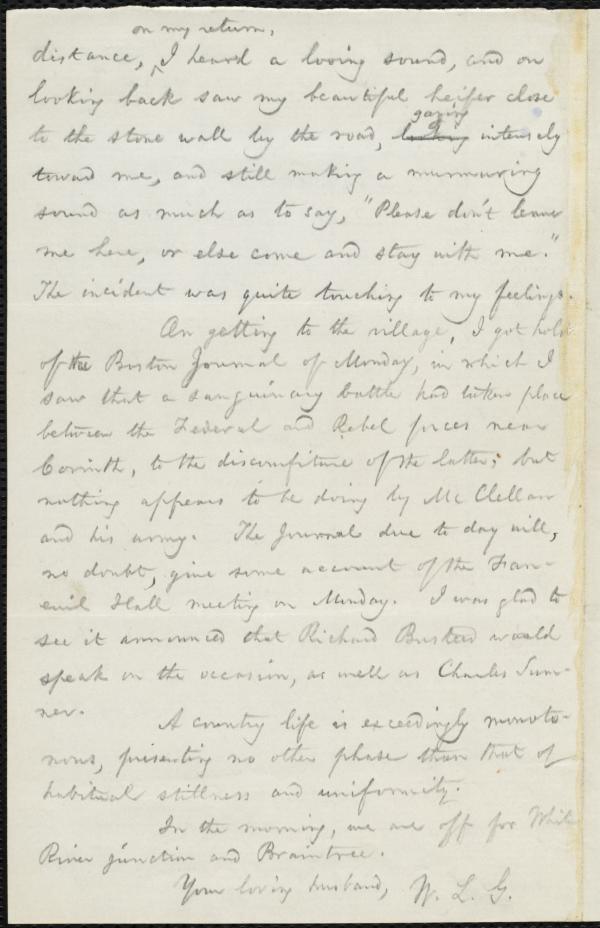 on my return,
distance, ^ I heard a loving sound, and on
looking back saw my beautiful heifer close
gazing
to the stone wall by the road, looking intensely
toward me, and still making a murmuring
sound as much as to say, "Please don't leave
me here, or else come and stay with me."
The incident was quite touching to my feelings.
On getting to the village, I got hold
of the Boston Journal of Monday, in which I
saw that a sanguinary battle had taken place
between the Federal and Rebel forces near
Corinth, to the discomfiture of the latter; but
nothing appears to be doing by McClellan
and his army. The Journal due to day will,
no doubt, give some account of the Fan-
euil Hall meeting on Monday. I was glad to
see it announced that Richard Busteed would
speak on the occasion, as well as Charles Sum-
ner.
A country life is exceedingly monoto-
nous, presenting no other phase than that of
habitual stillness and uniformity.
In the morning, we are off for White
River junction and Braintree.
Your loving husband, W. L. G.